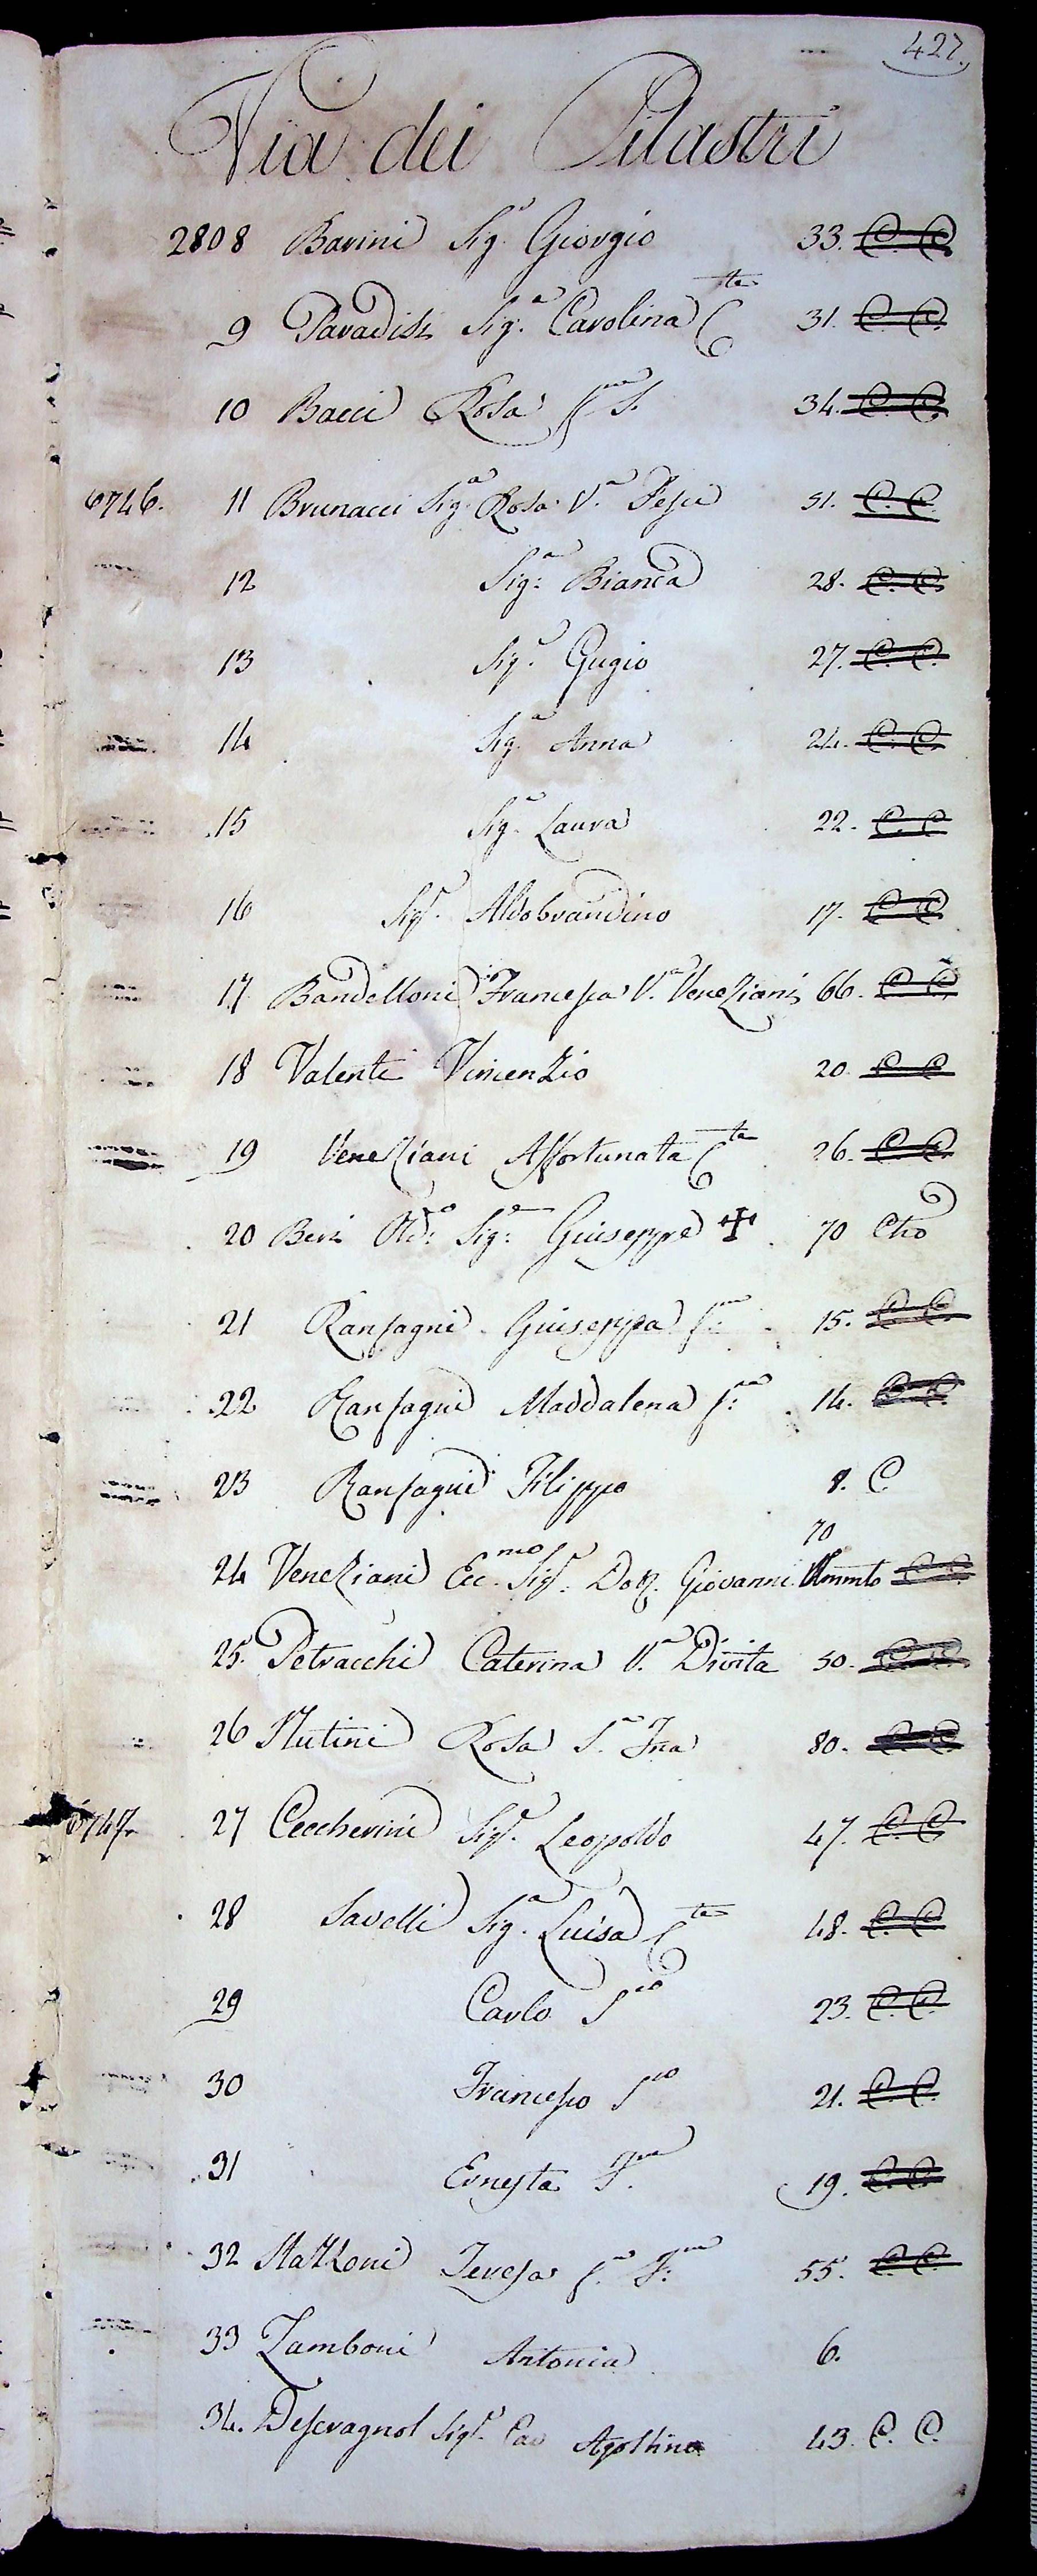 427.
Via dei Pilastri
2808 Barini Sig.r Giorgio 33. C. C.
9 Paradisi Sig.a Carolina C.te 31. C. C.
10 Bacci Rosa S. 34. C. C.
6746. 11 Brunacci Sig.a Rosa V.a Pesci 51. C. C.
12 Sig.a Bianca 28. C. C.
13 Sig.r Gugio 27. C. C.
14 Sig.a Anna 24. C. C.
15 Sig.a Laura 22. C. C.
16 Sig.r Aldobrandino 17. C. C.
17 Bandelloni Francesca V.a Veneziani 66. C. C.
18 Valenti Vincenzio 20. C. C.
19 Veneziani Affortunata C.ta 26. C. C.
20 Giuseppe ✠ 70 Cho
21 Ranfagni Giuseppa 15. C. C.
22 Ranfagni Maddalena 14. C. C.
23 Ranfagni Filippo 8. C.
70
24 Veneziani Ecc.mo Sig.r Dott. Giovanni C. C.
25. Petracchi Caterina V.a Divita 50. C. C.
26 Nutini Rosa 80. C. C.
6747. 27 Ceccherini Sig.r Leopoldo 47. C. C.
28 Savelli Sig.a Luisa C.ta 48. C. C.
29 Carlo S.co 23. C. C.
30 Francesco S.co 21. C. C.
31 Ernesta 19. C. C.
32 Mazzoni Teresa 55. C. C.
33 Zamboni Antonia 6.
34. Descragnol Sig.r Cav Agostino 43. C. C.